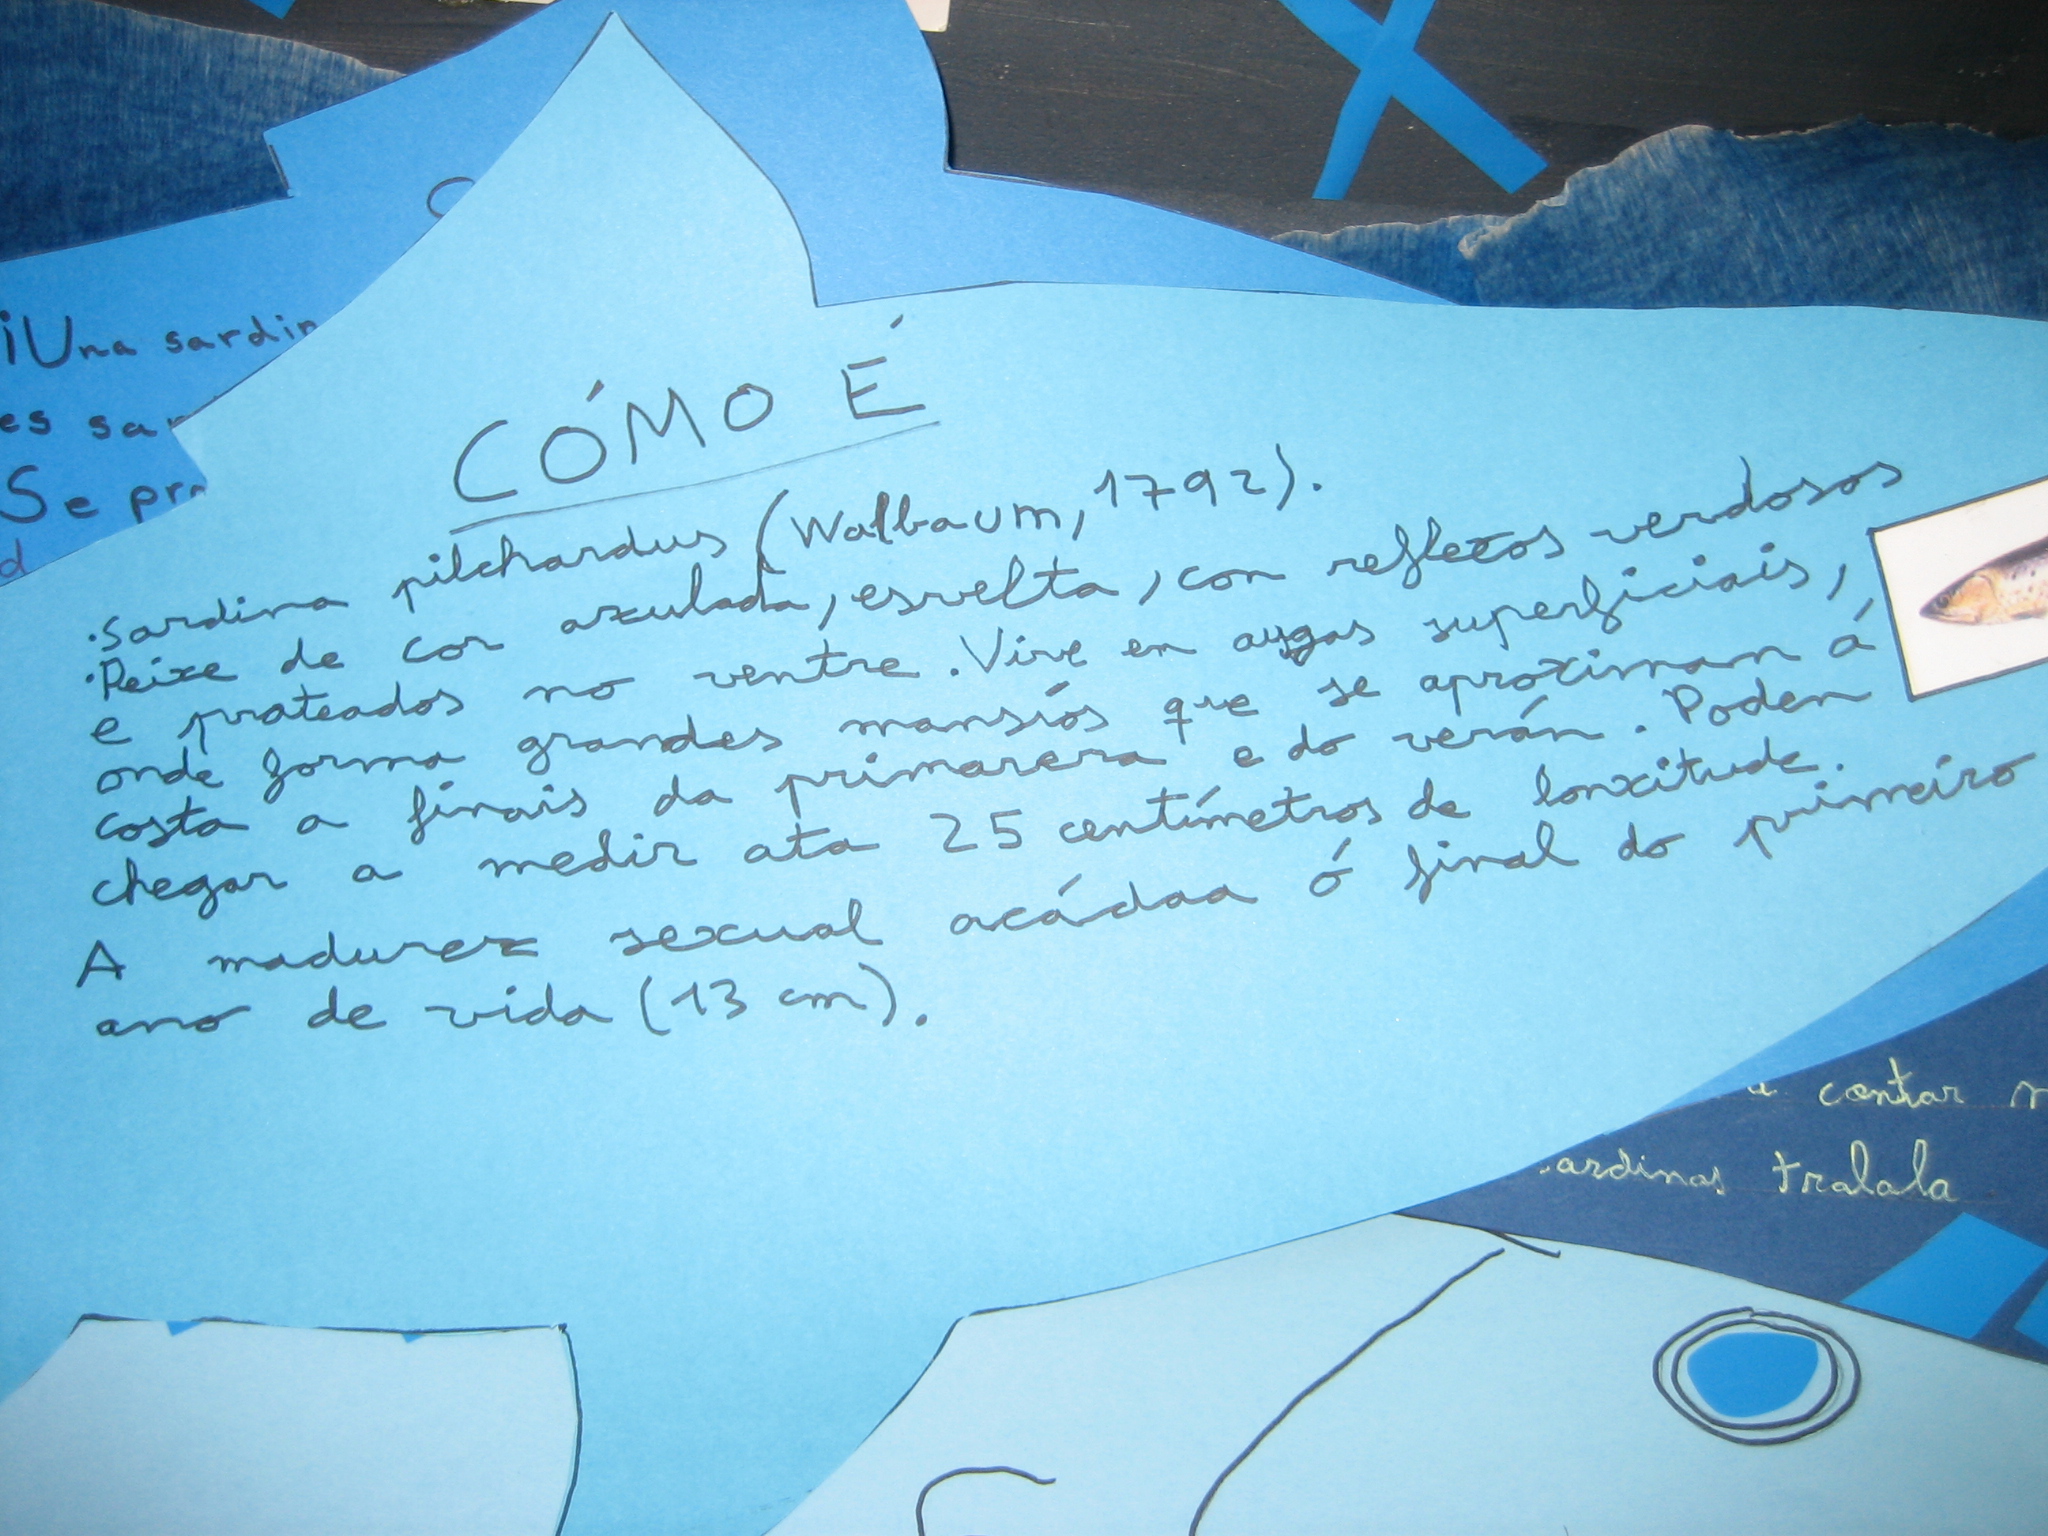 ¡Una sardin
es sar
Se pr
d
CÓMO É
·Sardina pilchardus (Walbaum, 1792).
·Peixe de cor azulada, esvelta, con reflexos verdosos
e prateados no ventre. Vive en augas superficiais,
onde forma grandes mansiós que se aproximan á
costa a finais da primavera e do verán. Poden
chegar a medir ata 25 centímetros de lonxitude.
A madurez sexual acádaa ó final do primeiro
ano de vida (13 cm).
a contar
sardinas tralala